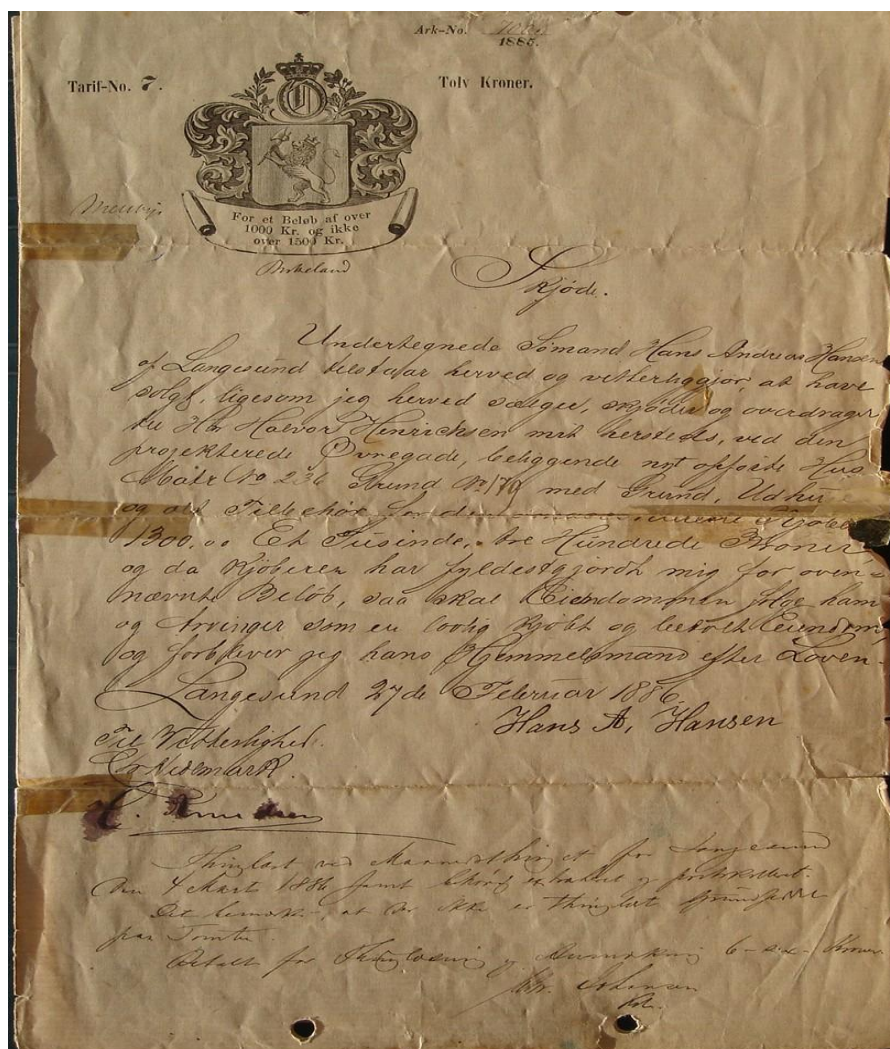 Ark-No.
1885.
Tarif-No. 7.
Tolv Kroner.
For et Beløb af over
1000 Kr. og ikke
over 1500 Kr.
Birkeland
Skjøde.
Undertegnede Sømand Hans Andreas Hansen
af Langesund tilstaar herved og vitterliggjør, at have
solgt, ligesom jeg herved sælger, skjøder og overdrager
til Hr Halvor Henrichsen mit hersteds, ved den
projekterede Øvregade, beliggende nyt opførte Hus
Matr No 236 Grund No 170 med Grund, Udhus
og alt Tilbehør for den
1300,00 Et Tusinde, tre Hundrede Kroner
og da Kjøberen har fyldestgjordt mig for oven-
nævnte Beløb, saa skal Eiendommen følge ham
og Arvinger som en lovlig kjøbt og betalt Eiendom,
og forbliver jeg hans Hjemmelsmand efter Loven.
Langesund 27de Februar 1886.
Hans A. Hansen
Til Vitterlighed.
C. Knudsen
Thinglæst ved Maanedsthinget for Langesund
den 4 Marts 1886 samt behørig extrahert og protokollert.
Det bemærkes, at der ikke er thinglæst
paa Tomten.
Betalt for Thinglæsning og Anmærkning 6 - sex - Kroner